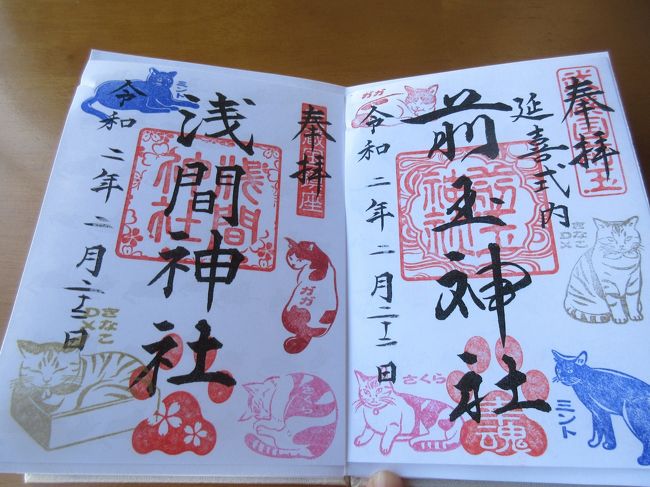 奉拝
延喜式内
前玉神社
令和二年二月二十二日
ガガ
きなこ
DX
さくら
ミント
魂
奉拝
浅間神社
令和二年二月二十二日
ミント
ガガ
きなこ
DX
浅間
神社